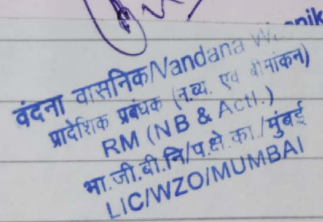 वंदना वासनिक/Vandana
प्रादेशिक प्रबंधक (न.व्य. एवं बीमांकन)
RM (NB & Actl.)
भा.जी.बी.नि/प.क्षे.का./मुंबई
LIC/WZO/MUMBAI